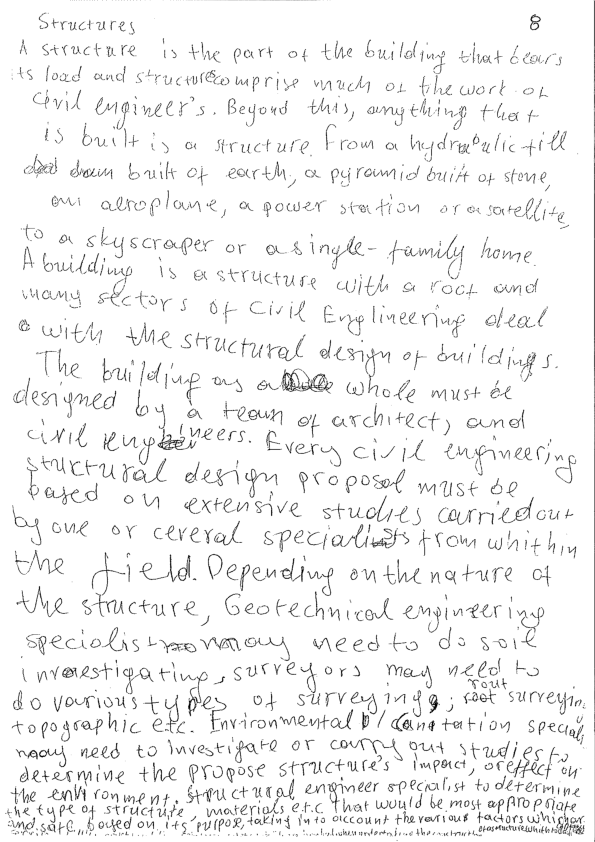 Structures 8
A structure is the part of the building that bears
its load and structures comprise much of the work of
Civil engineer's. Beyond this, anything that
is built is a structure. From a hydraulic fill
dam built of earth, a pyramid built of stone,
an aeroplane, a power station or a satellite,
to a skyscraper or a single-family home.
A building is a structure with a roof and
many sectors of Civil Engineering deal
with the structural design of buildings.
The building as a whole must be
designed by a team of architect, and
civil engineers. Every civil engineering
sturctural design proposal must be
based on extensive studies carried out
by one or ceveral specialists from whithin
the field. Depending on the nature of
the structure, Geotechnical engineering
specialist may need to do soil
investigating, surveyors may need to
do various types of surveying; rout surveying
topographic etc. Environmental / Sanitation speciali
may need to investigate or carry out studies to
determine the propose structure's impact, or effect on
the environment. Structural engineer specialist to determine
the type of structure, materials e.t.c that would be most appropiate
and safe, based on its purpose, taking in to account the various factors which